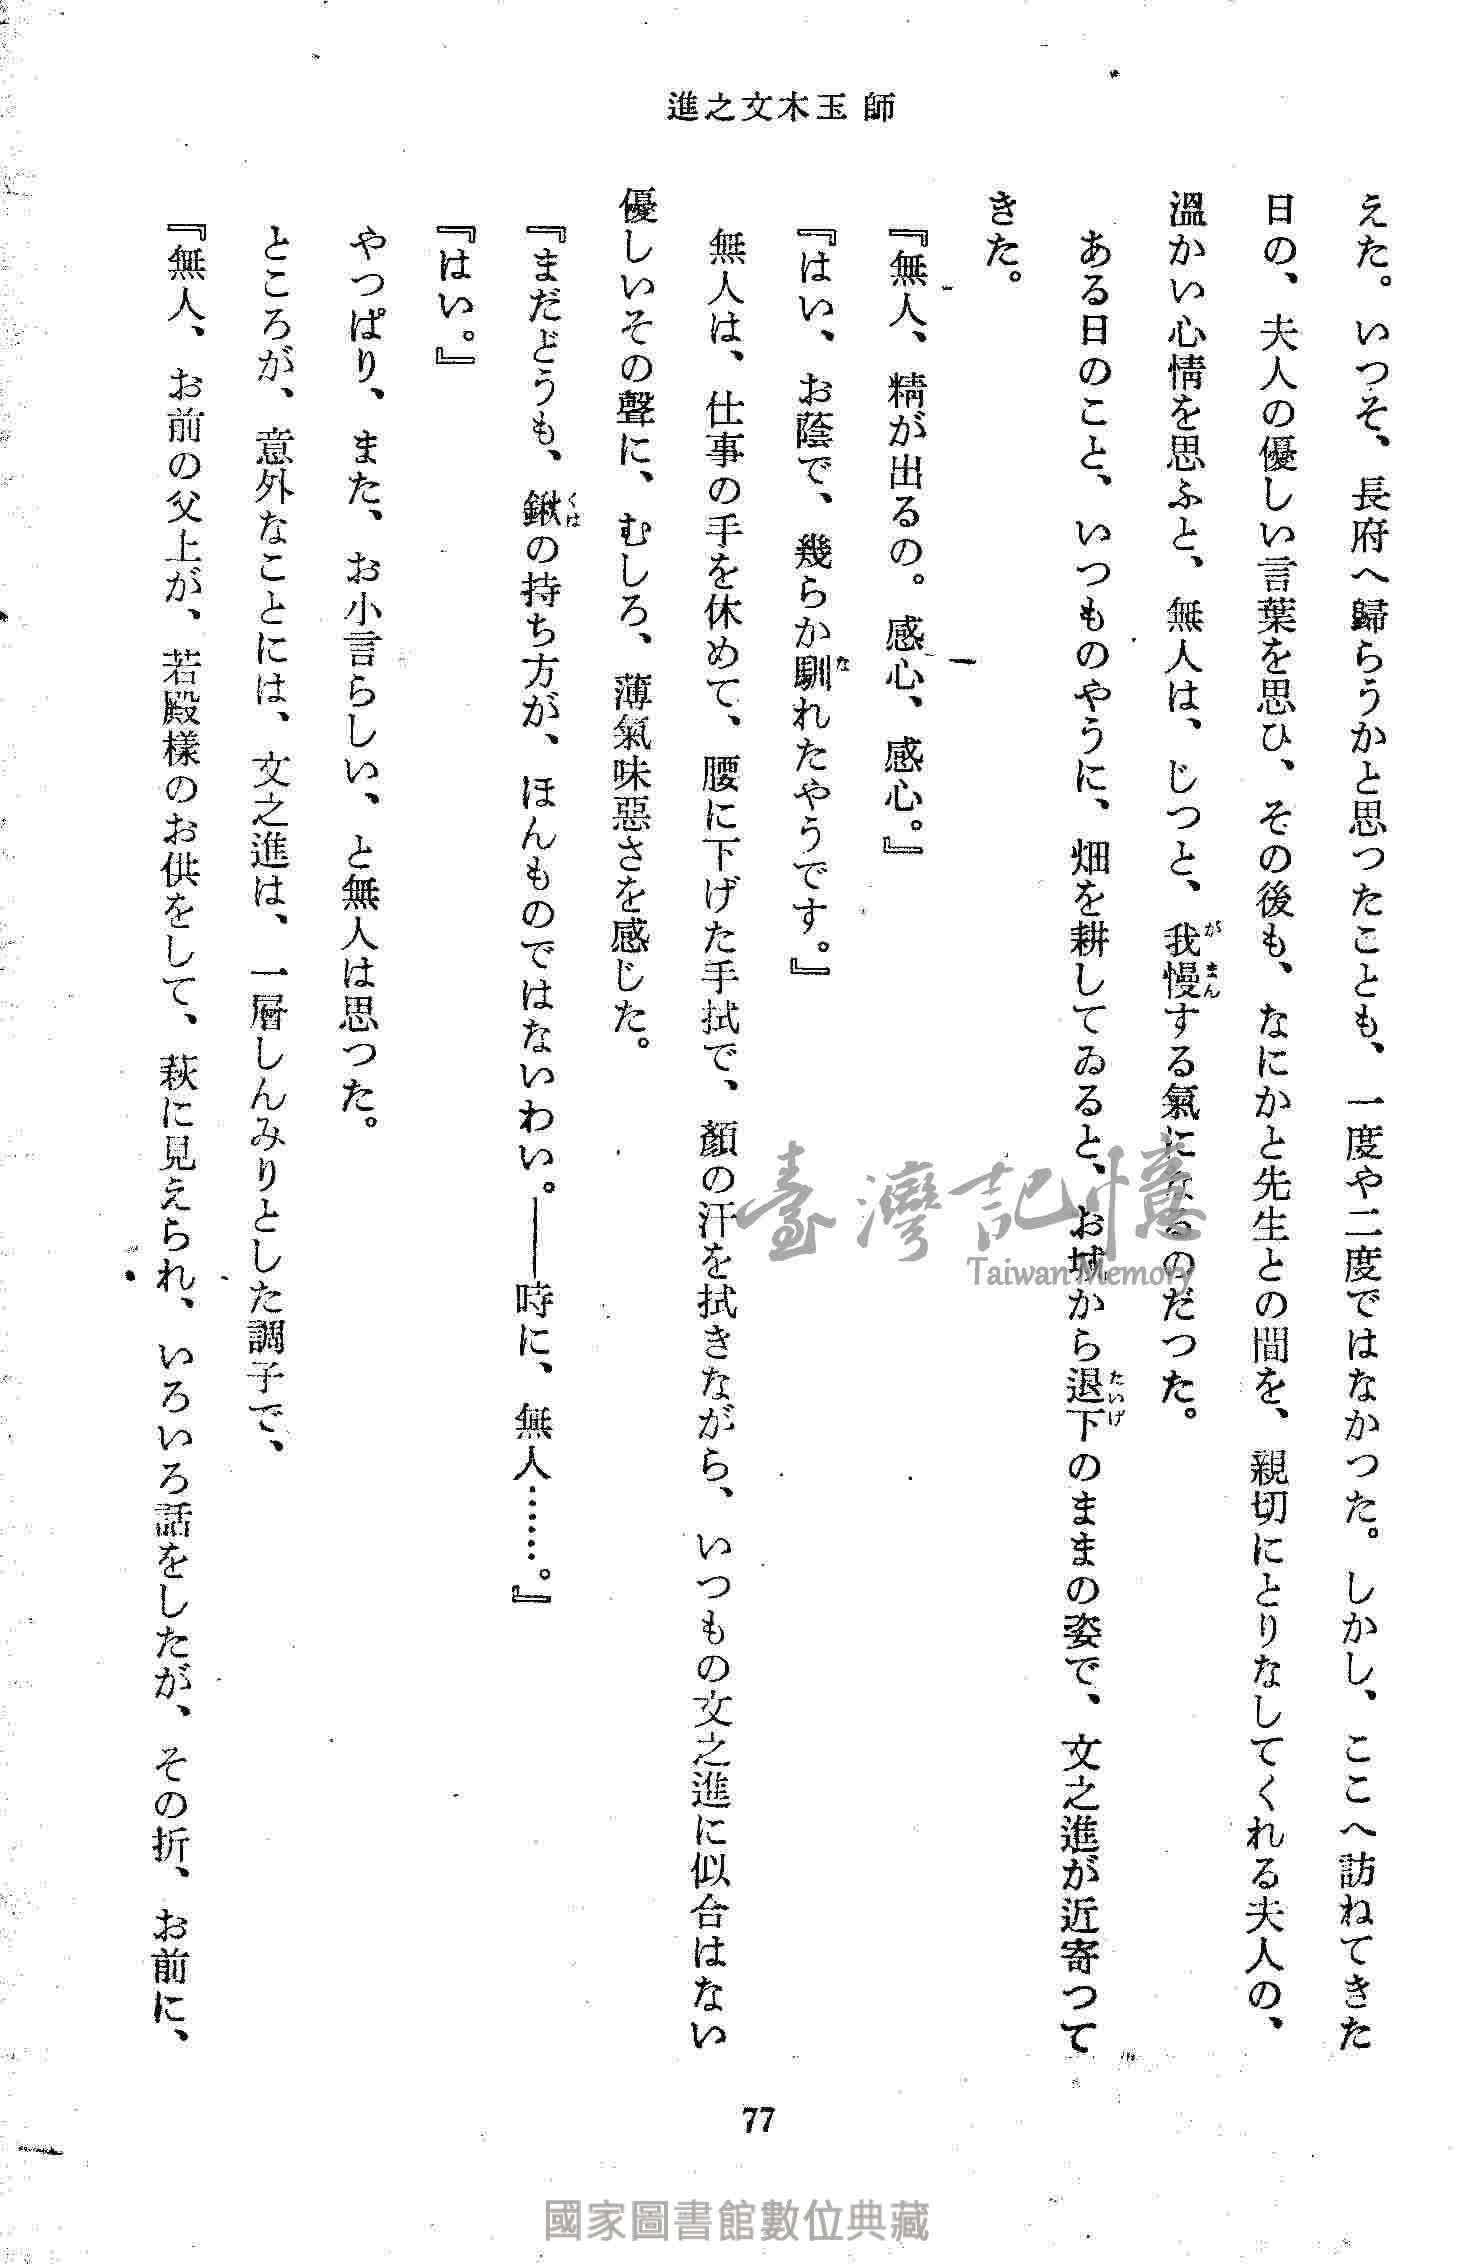 師 玉木文之進
えた。いつそ、長府へ歸らうかと思つたことも、一度や二度ではなかつた。しかし、ここへ訪ねてきた
日の、夫人の優しい言葉を思ひ、その後も、なにかと先生との間を、親切にとりなしてくれる夫人の、
溫かい心情を思ふと、無人は、じつと、我慢する氣になるのだつた。
がまん
ある日のこと、いつものやうに、畑を耕してゐると、お城から退下のままの姿で、文之進が近寄つて
たいげ
きた。
『無人、精が出るの。感心、感心。』
『はい、お蔭で、幾らか馴れたやうです。』
な
無人は、仕事の手を休めて、腰に下げた手拭で、顏の汗を拭きながら、いつもの文之進に似合はない
優しいその聲に、むしろ、薄氣味惡さを感じた。
『まだどうも、鍬の持ち方が、ほんものではないわい。――時に、無人……。』
くは
『はい。』
やつぱり、また、お小言らしい、と無人は思つた。
ところが、意外なことには、文之進は、一層しんみりとした調子で、
『無人、お前の父上が、若殿樣のお供をして、萩に見えられ、いろいろ話をしたが、その折、お前に、
77
臺灣記憶
Taiwan Memory
國家圖書館數位典藏